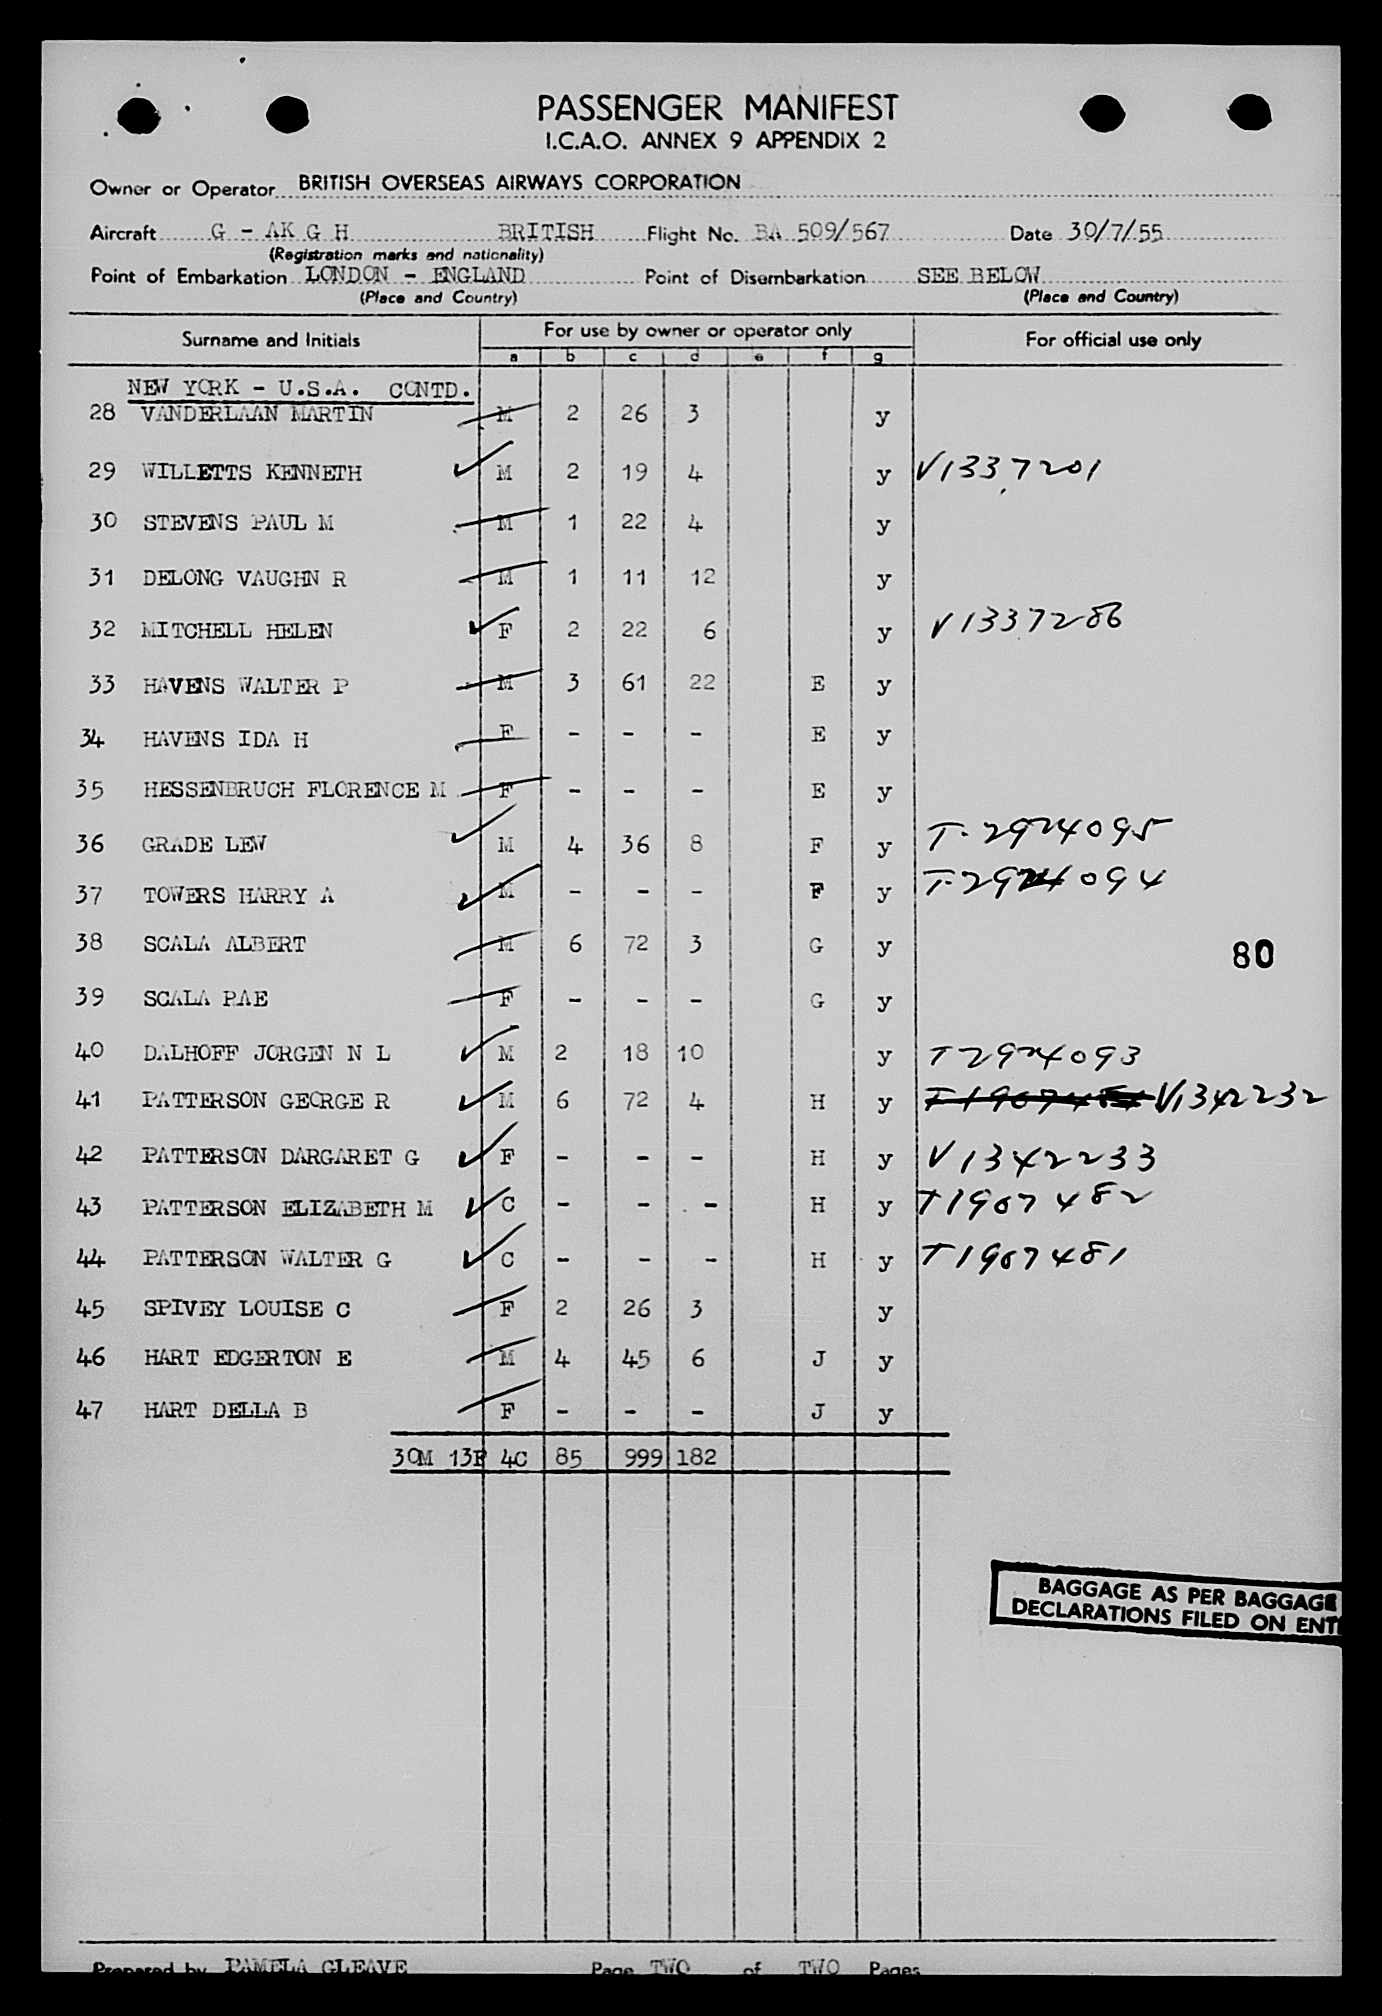 PASSENGER MANIFEST
I.C.A.O. ANNEX 9 APPENDIX 2
Owner or Operator BRITISH OVERSEAS AIRWAYS CORPORATION
Aircraft G - AK G H BRITISH Flight No. BA 509/567 Date 30/7/55
(Registration marks and nationality)
Point of Embarkation LONDON - ENGLAND Point of Disembarkation SEE BELOW
(Place and Country) (Place and Country)
Surname and Initials For use by owner or operator only For official use only
a b c d e f g
NEW YORK - U.S.A. CONTD.
28 VANDERLAAN MARTIN M 2 26 3 y
29 WILLETTS KENNETH M 2 19 4 y V1337201
30 STEVENS PAUL M M 1 22 4 y
31 DELONG VAUGHN R M 1 11 12 y
32 MITCHELL HELEN F 2 22 6 y V1337286
33 HAVENS WALTER P M 3 61 22 E y
34 HAVENS IDA H F - - - E y
35 HESSENBRUCH FLORENCE M F - - - E y
36 GRADE LEW M 4 36 8 F y T-2924095
37 TOWERS HARRY A M - - - F y T-2924094
38 SCALA ALBERT M 6 72 3 G y
80
39 SCALA RAE F - - - G y
40 DALHOFF JORGEN N L M 2 18 10 y T2924093
41 PATTERSON GEORGE R M 6 72 4 H y V1342232
42 PATTERSON DARGARET G F - - - H y V1342233
43 PATTERSON ELIZABETH M C - - - H y T1907482
44 PATTERSON WALTER G C - - - H y T1907481
45 SPIVEY LOUISE C F 2 26 3 y
46 HART EDGERTON E M 4 45 6 J y
47 HART DELLA B F - - - J y
30M 13F 4C 85 999 182
BAGGAGE AS PER BAGGAGE
DECLARATIONS FILED ON ENT
Prepared by PAMELA GLEAVE Page TWO of TWO Pages